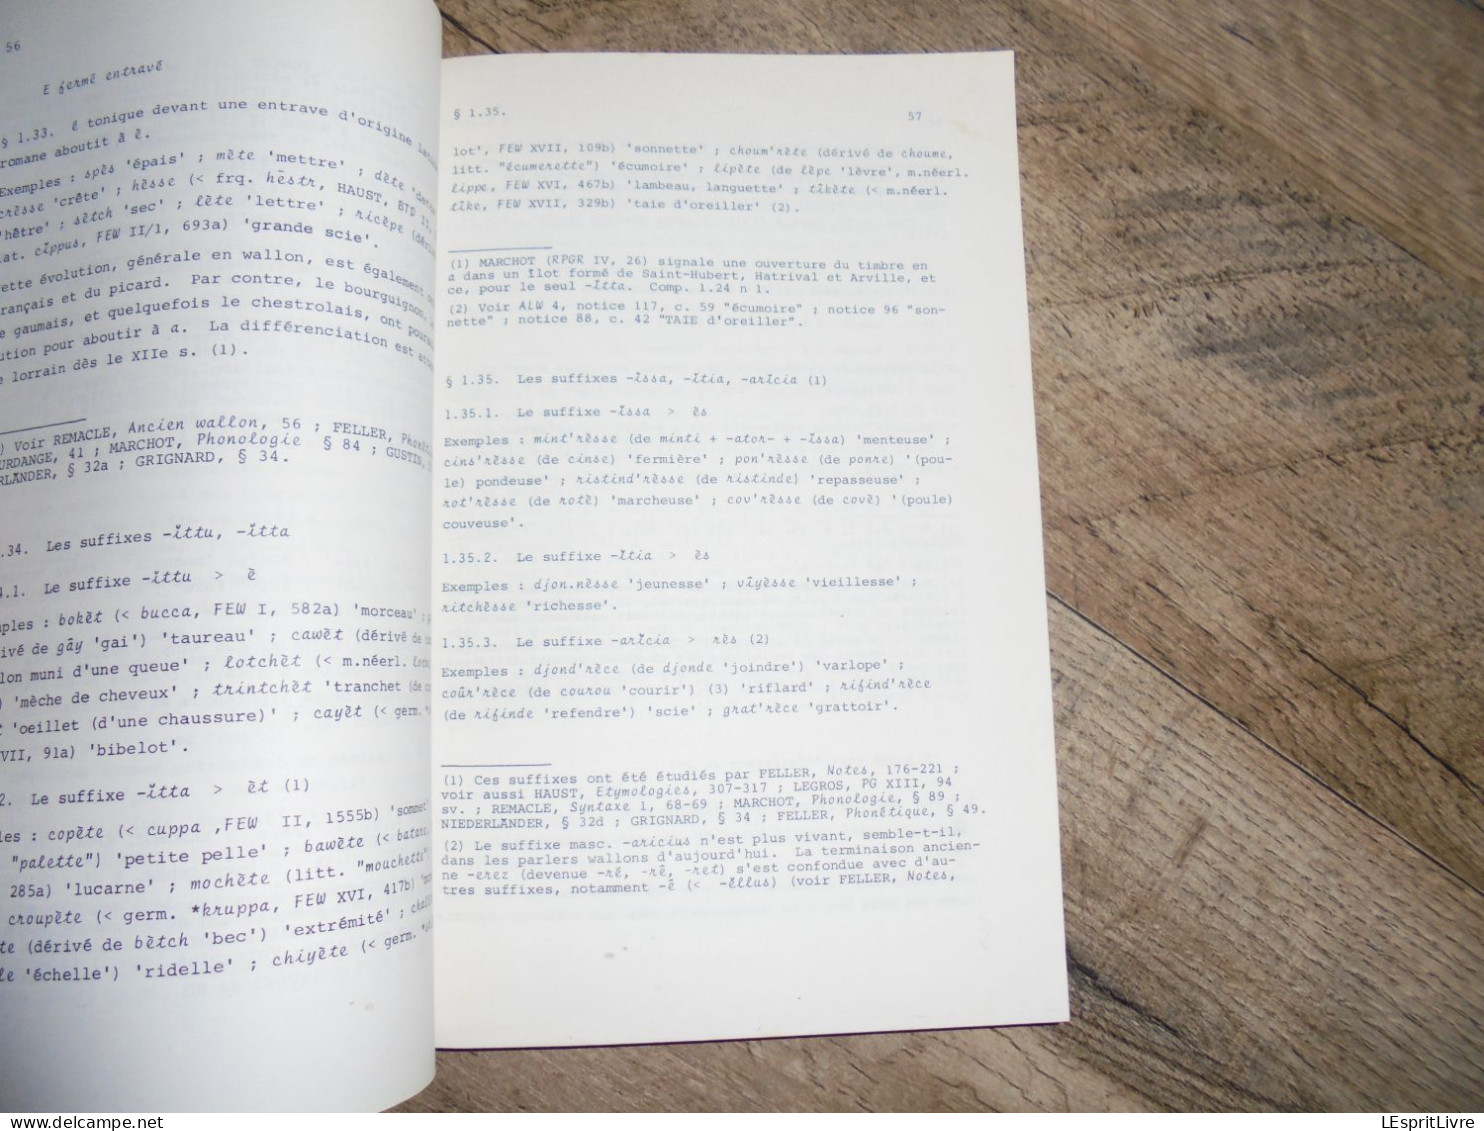 56
E fermé entravé
§ 1.33. ĕ tonique devant une entrave d'origine
romane aboutit à è.
Exemples : spès 'épais' ; mète 'mettre' ; dète
crèsse 'crête' ; hèsse (< frq. hēstr, HAUST, BTD II,
'hêtre' ; sètch 'sec' ; lète 'lettre' ; ricèpe
lat. cĭppus, FEW II/1, 693a) 'grande scie'.
ette évolution, générale en wallon, est également
rançais et du picard. Par contre, le bourguignon,
e gaumais, et quelquefois le chestrolais, ont
ution pour aboutir à a. La différenciation est
e lorrain dès le XIIe s. (1).
) Voir REMACLE, Ancien wallon, 56 ; FELLER,
URDANGE, 41 ; MARCHOT, Phonologie § 84 ; GUSTIN,
RLÄNDER, § 32a ; GRIGNARD, § 34.
.34. Les suffixes -ĭttu, -ĭtta
4.1. Le suffixe -ĭttu > è
mples : bokèt (< bucca, FEW I, 582a) 'morceau' ;
ivé de gây 'gai') 'taureau' ; cawèt (dérivé de
lon muni d'une queue' ; lotchèt (< m.néerl.
) 'mèche de cheveux' ; trintchèt 'tranchet (de
t 'oeillet (d'une chaussure)' ; cayèt (< germ.
VII, 91a) 'bibelot'.
2. Le suffixe -ĭtta > èt (1)
les : copète (< cuppa ,FEW II, 1555b) 'sommet'
"palette") 'petite pelle' ; bawète (<
285a) 'lucarne' ; mochète (litt. "mouchette"
croupète (< germ. *kruppa, FEW XVI, 417b)
te (dérivé de bètch 'bec') 'extrémité' ;
le 'échelle') 'ridelle' ; chiyète (< germ.
§ 1.35.
57
lot', FEW XVII, 109b) 'sonnette' ; choum'rète (dérivé de choume,
litt. "écumerette") 'écumoire' ; lipète (de lèpe 'lèvre', m.néerl.
lippe, FEW XVI, 467b) 'lambeau, languette' ; tîkète (< m.néerl.
tîke, FEW XVII, 329b) 'taie d'oreiller' (2).
(1) MARCHOT (RPGR IV, 26) signale une ouverture du timbre en
a dans un îlot formé de Saint-Hubert, Hatrival et Arville, et
ce, pour le seul -ĭtta. Comp. 1.24 n 1.
(2) Voir ALW 4, notice 117, c. 59 "écumoire" ; notice 96 "son-
nette" ; notice 88, c. 42 "TAIE d'oreiller".
§ 1.35. Les suffixes -ĭssa, -ĭtia, -arĭcia (1)
1.35.1. Le suffixe -ĭssa > ès
Exemples : mint'rèsse (de minti + -ator- + -ĭssa) 'menteuse' ;
cins'rèsse (de cinse) 'fermière' ; pon'rèsse (de ponre) '(pou-
le) pondeuse' ; ristind'rèsse (de ristinde) 'repasseuse' ;
rot'rèsse (de rotè) 'marcheuse' ; cov'rèsse (de covè) '(poule)
couveuse'.
1.35.2. Le suffixe -ĭtia > ès
Exemples : djon.nèsse 'jeunesse' ; vîyèsse 'vieillesse' ;
ritchèsse 'richesse'.
1.35.3. Le suffixe -arĭcia > rès (2)
Exemples : djond'rèce (de djonde 'joindre') 'varlope' ;
coûr'rèce (de courou 'courir') (3) 'riflard' ; rifind'rèce
(de rifinde 'refendre') 'scie' ; grat'rèce 'grattoir'.
(1) Ces suffixes ont été étudiés par FELLER, Notes, 176-221 ;
voir aussi HAUST, Etymologies, 307-317 ; LEGROS, PG XIII, 94
sv. ; REMACLE, Syntaxe 1, 68-69 ; MARCHOT, Phonologie, § 89 ;
NIEDERLÄNDER, § 32d ; GRIGNARD, § 34 ; FELLER, Phonétique, § 49.
(2) Le suffixe masc. -aricius n'est plus vivant, semble-t-il,
dans les parlers wallons d'aujourd'hui. La terminaison ancien-
ne -erez (devenue -ré, -rê, -ret) s'est confondue avec d'au-
tres suffixes, notamment -ê (< -ĕllus) (voir FELLER, Notes,
delcampe.net
LEspritLivre